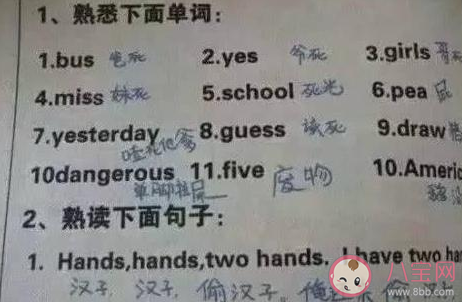 1、熟悉下面单词：
1.bus 爸死 2.yes 爷死 3.girls 哥死
4.miss 妹死 5.school 死光 6.pea 屁
7.yesterday 8.guess 该死 9.draw
10dangerous 单脚拉屎 11.five 废物 10.Americ
2、熟读下面句子：
1. Hands,hands,two hands. I have two han
汉子，汉子，偷汉子。俺
八宝网
www.8bb.com